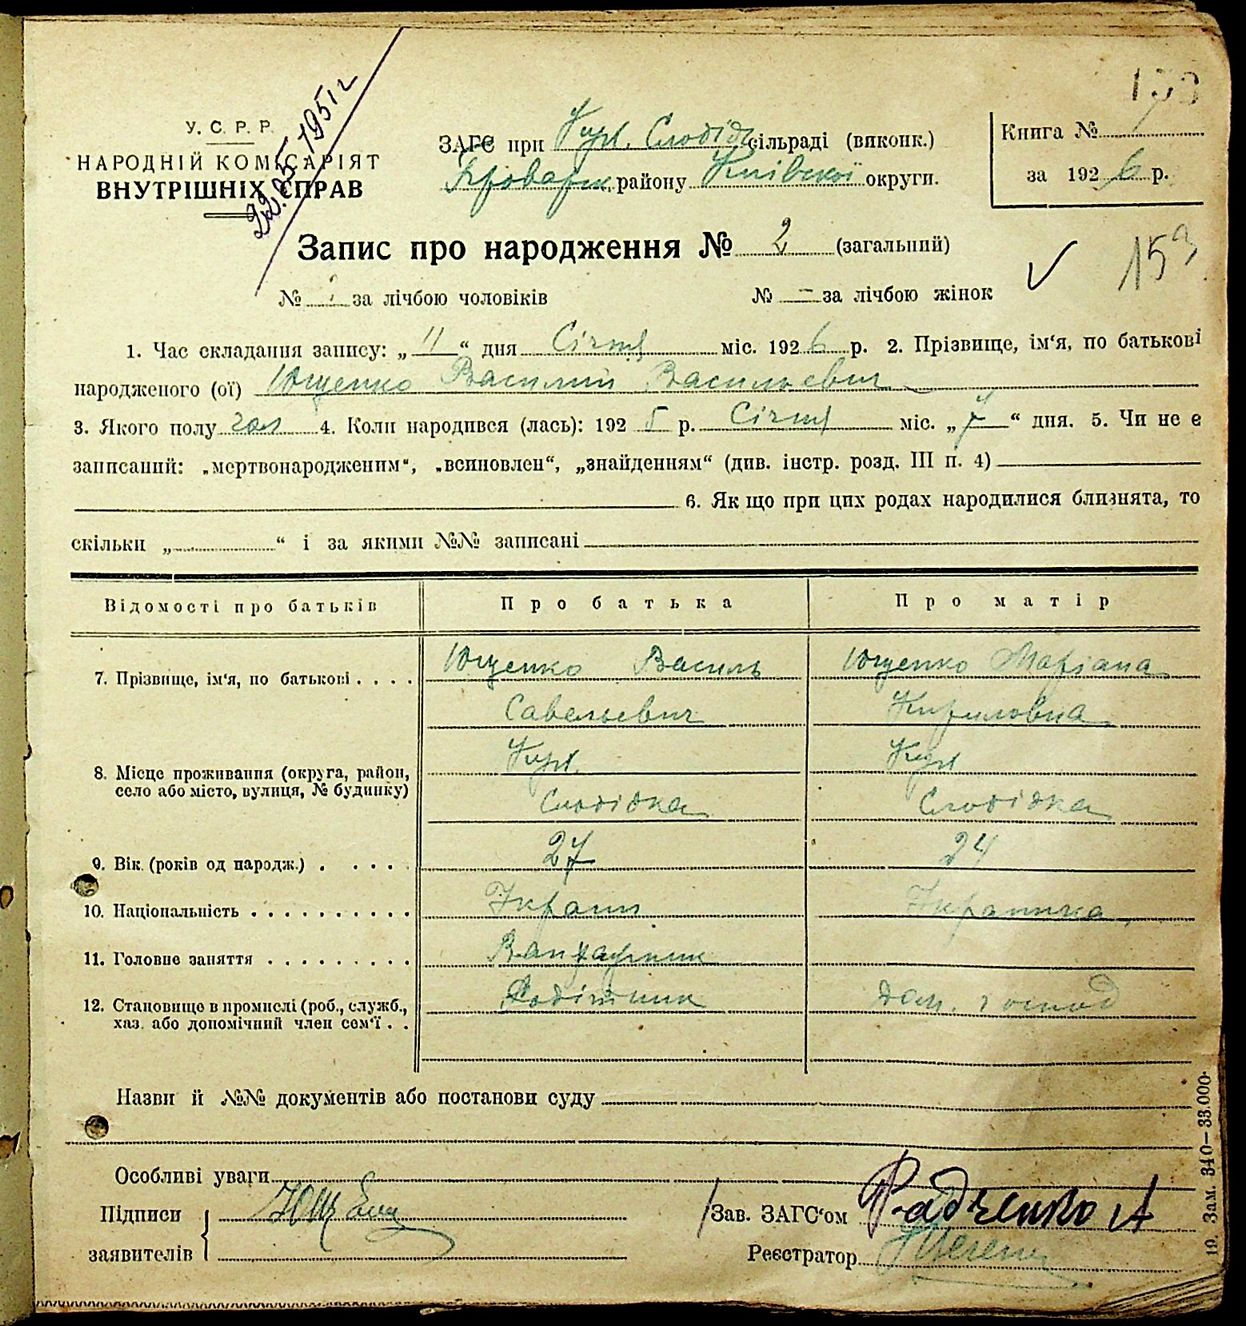 173
22.05.1951 г
У. С. Р. Р.
НАРОДНІЙ КОМІСАРІЯТ
ВНУТРІШНІХ СПРАВ
ЗАГС при Кул. Слобід. сільраді (виконк.)
Броварськ. району Київської округи.
Книга №
за 1926 р.
Запис про народження № 2 (загальний)
15а
№ за лічбою чоловіків
№ – за лічбою жінок
1. Час складання запису: „ 11 “ дня Січня міс. 1926 р. 2. Прізвище, ім'я, по батькові
народженого (ої) Ющенко Василий Васильевич
3. Якого полу чол 4. Коли народився (лась): 1925 р. Січня міс. „ 7 “ дня. 5. Чи не є
записаний: „мертвонародженим“, „всиновлен“, „знайденням“ (див. інстр. розд. III п. 4)
6. Як що при цих родах народилися близнята, то
скільки „ “ і за якими №№ записані
Відомості про батьків Про батька Про матір
7. Прізвище, ім'я, по батькові . . . . Ющенко Василь Ющенко Маріана
Савельевич Кириловна
8. Місце проживання (округа, район, Кул. Кул
село або місто, вулиця, № будинку) Слобідка Слобідка
9. Вік (років од народж.) . . . . . 27 24
10. Національність . . . . . . . . . . Україн Українка
11. Головне заняття . . . . . . . . .
12. Становище в промислі (роб., служб., Робітник дом. господ
хаз. або допомічний член сем'ї . .
Назви й №№ документів або постанови суду
Особливі уваги
Підписи
заявителів
Зав. ЗАГС'ом Радченко А
Реєстратор
19. Зам. 340—33.000.